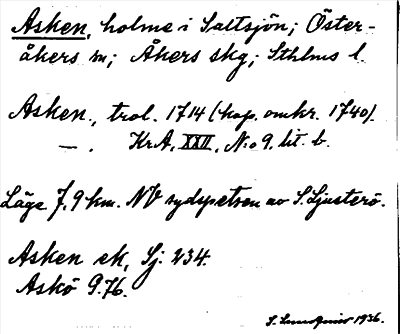 Asken, holme i Saltsjön; Öster-
åkers sn; Åkers skg; Sthlms l.
Asken, trol. 1714 (kop. omkr. 1740).
— . KrA, XXII, N:o 9. lit. b.
Läge 7,9 km. NV sydspetsen av S. Ljusterö.
Asken ek, Sj. 234.
Askö 9.76.
S. 1936.